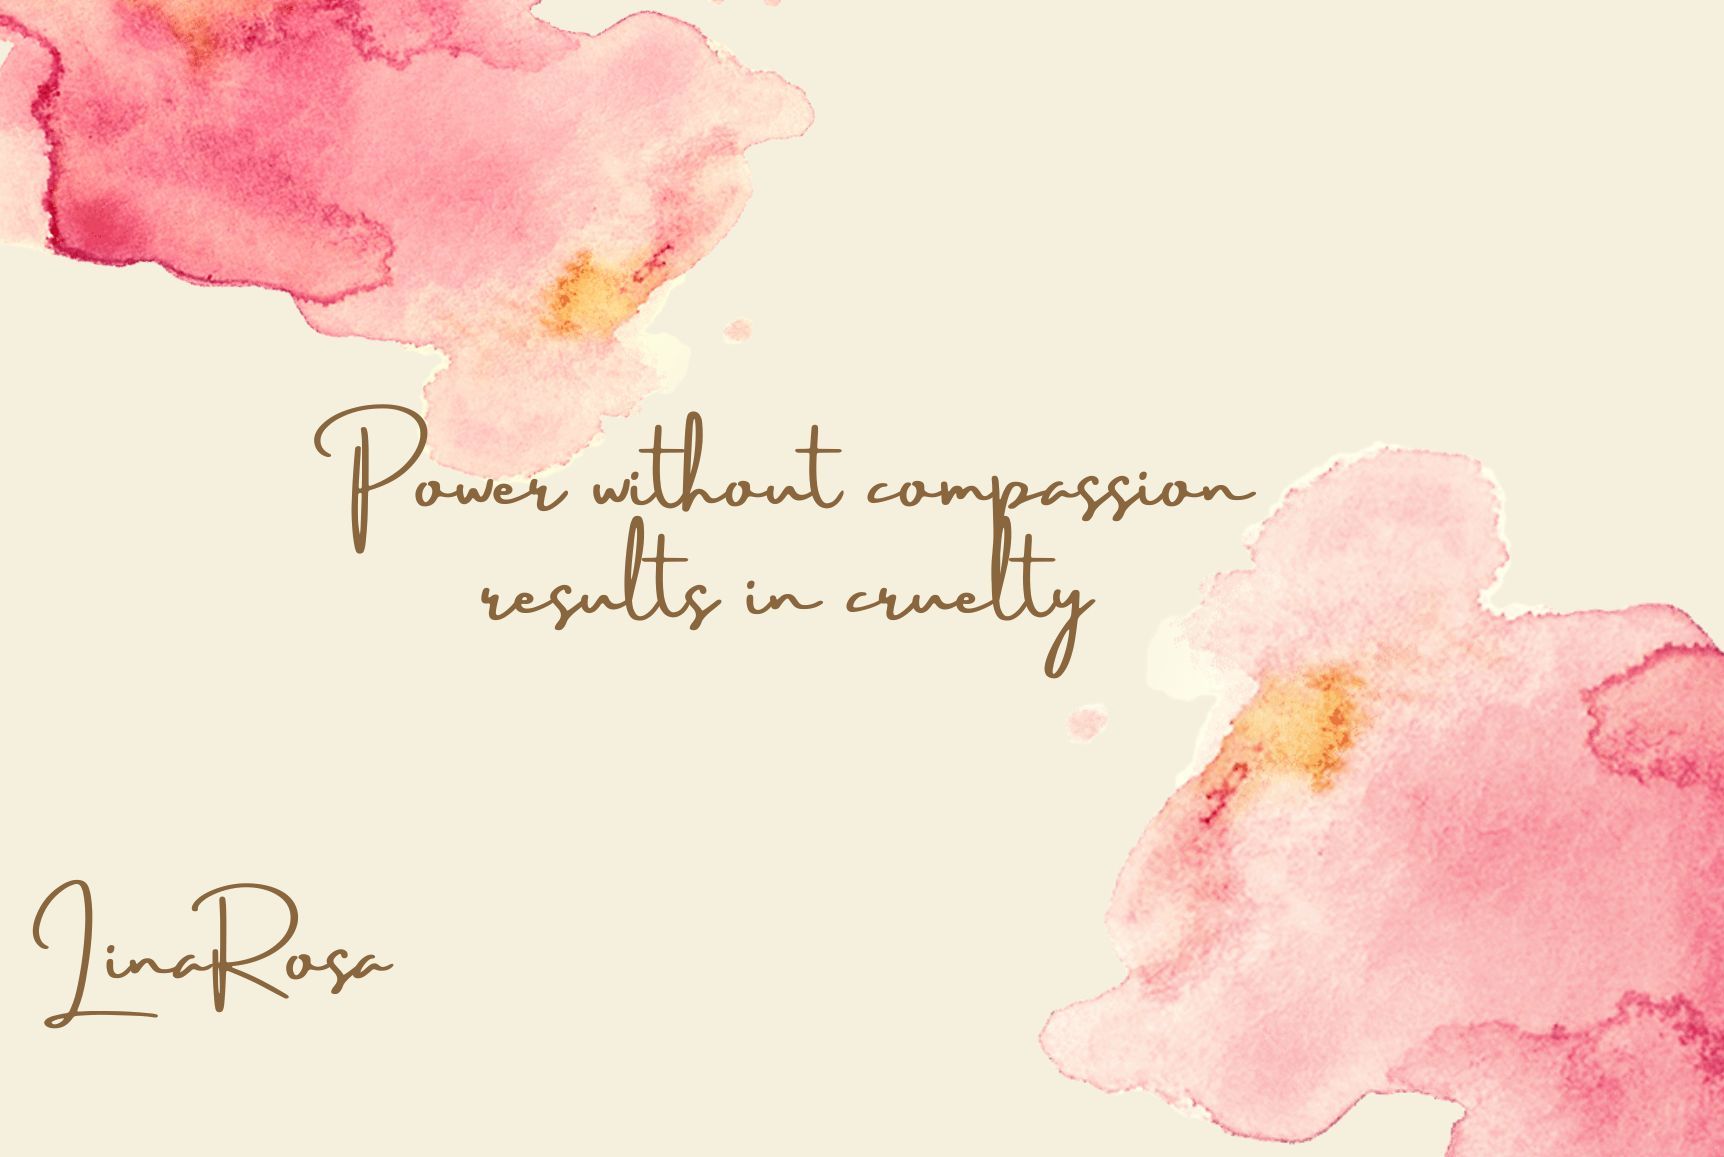 Power without compassion
results in cruelty
LinaRosa